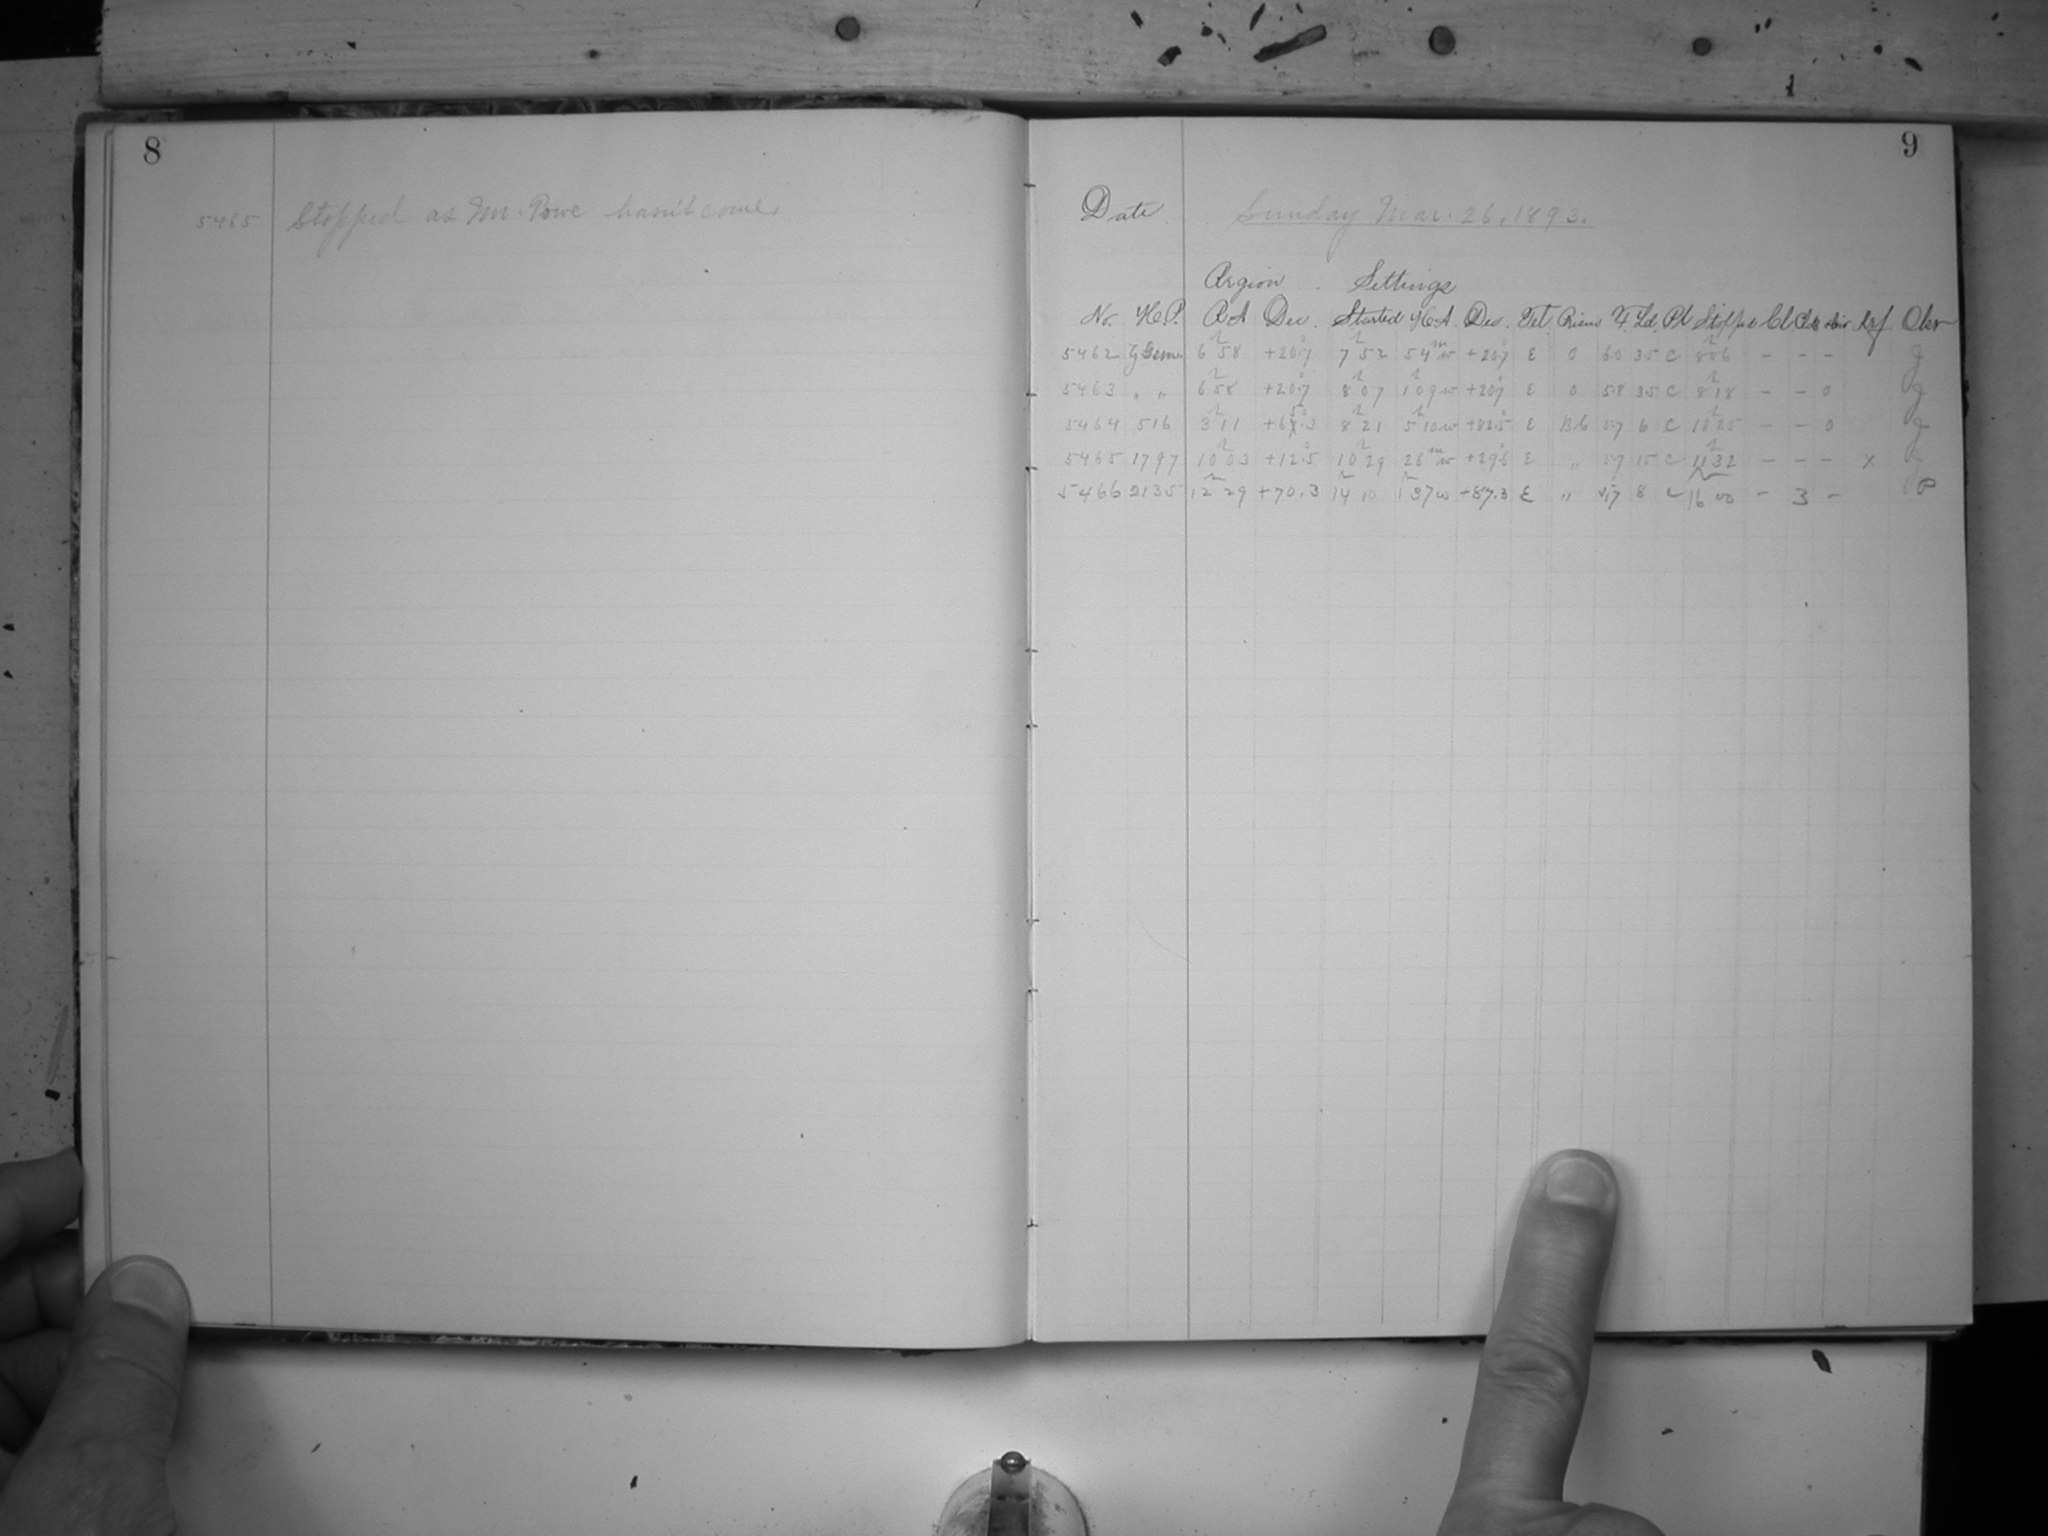 8
5465 Stopped as Mr. Powe hasn't come.
9
Date Sunday Mar. 26, 1893.
Region Settings
No. H.P. RA Dec. Started HA Dec. Tel. Prism F. Ld. Pl Stopped Cl Ref. Obsr
5462 ζ Gem. 6h 58 +20°.7 7h 52 54m w +20°.7 E 0 60 35 C 8h 06 - - - J
5463 " " 6h 58 +20°.7 8h 07 1h 09 w +20°.7 E 0 58 35 C 8h 18 - - 0 J
5464 516 3h 11 8h 21 5h 10 w +82.5 E 57 6 C 10h 25 - - 0 J
5465 1797 10h 03 +12°.5 10h 29 26m w +29°.6 E " 59 15 C 11h 32 - - - x
5466 2135 12h 29 +70.3 14h 10 1h 37 w +87.3 E " 8 C 16h 00 - 3 - P